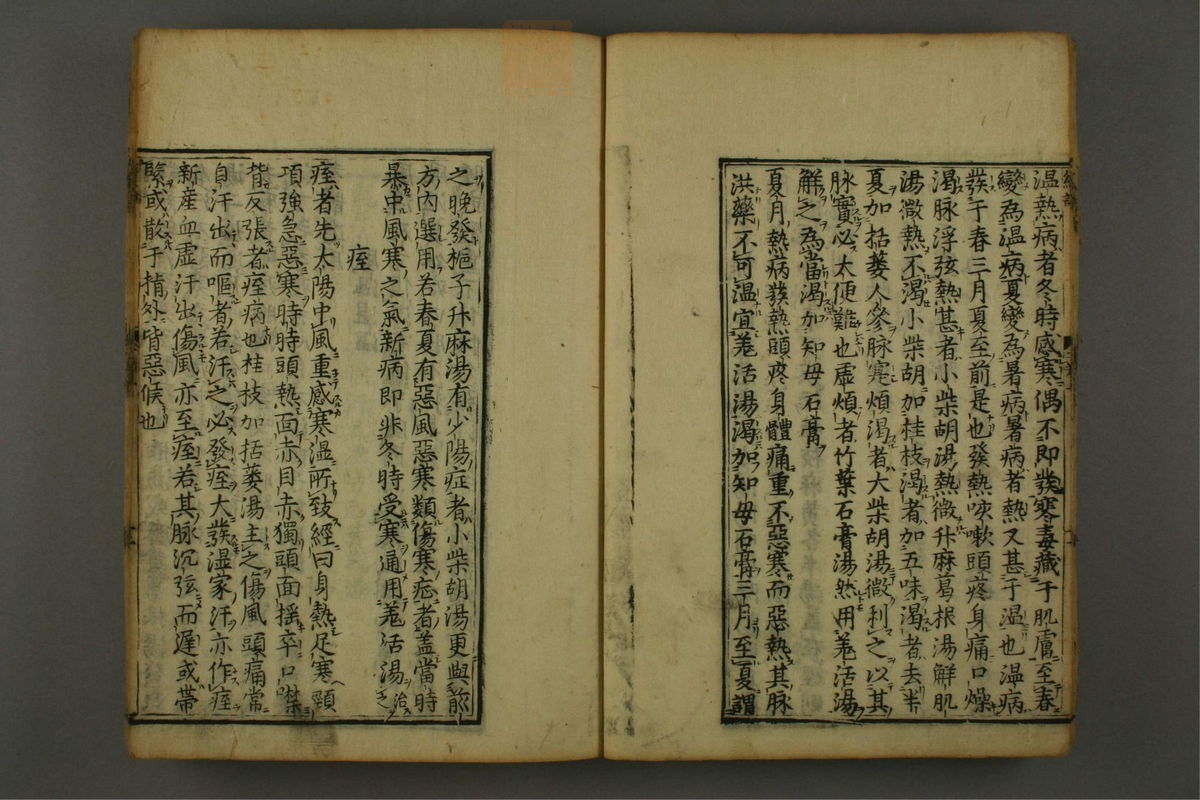 温熱病者冬時感寒偶不即發寒毒藏于肌膚至春
變為温病夏變為暑病暑病者熱又甚于温也温病
發于春三月夏至前是也發熱咳嗽頭疼身痛口燥
渇脉浮弦熱甚者小柴胡湯熱微升麻葛根湯觧肌
湯微熱不渇小柴胡加桂枝渇者加五味渇者去半
夏加括蔞人參脉寔煩渇者大柴胡湯微利之以其
脉實必大便難也虚煩者竹葉石膏湯熱用羗活湯
觧之為當渇加知母石膏
夏月熱病發熱頭疼身體痛重不惡寒而惡熱其脉
洪藥不可温宜羗活湯渇加知毋石膏三月至夏謂
之晚發梔子升麻湯有少陽症者小柴胡湯更與前
方内選用若春夏有惡風惡寒類傷寒症者盖當時
暴中風寒之氣新病即非冬時受寒通用羗活湯治之
痓
痓者先太陽中風重感寒温所致經曰身熱足寒頸
項強急惡寒時時頭熱面赤目赤獨頭面揺卒口噤
背反張者痓病也桂枝加括蔞湯主之傷風頭痛常
自汗出而嘔者若汗之必發痓大發湿家汗亦作痓
新産血虚汗出傷風亦至痓若其脉沉弦而遅或帶
緊或散于指外皆惡候也